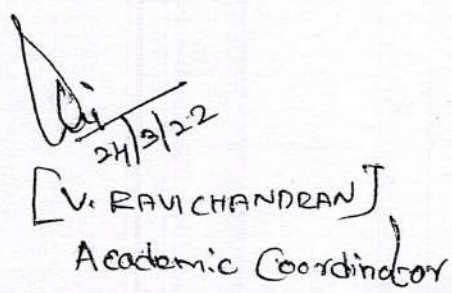 24/3/22
[V. RAVICHANDRAN]
Academic Coordinator